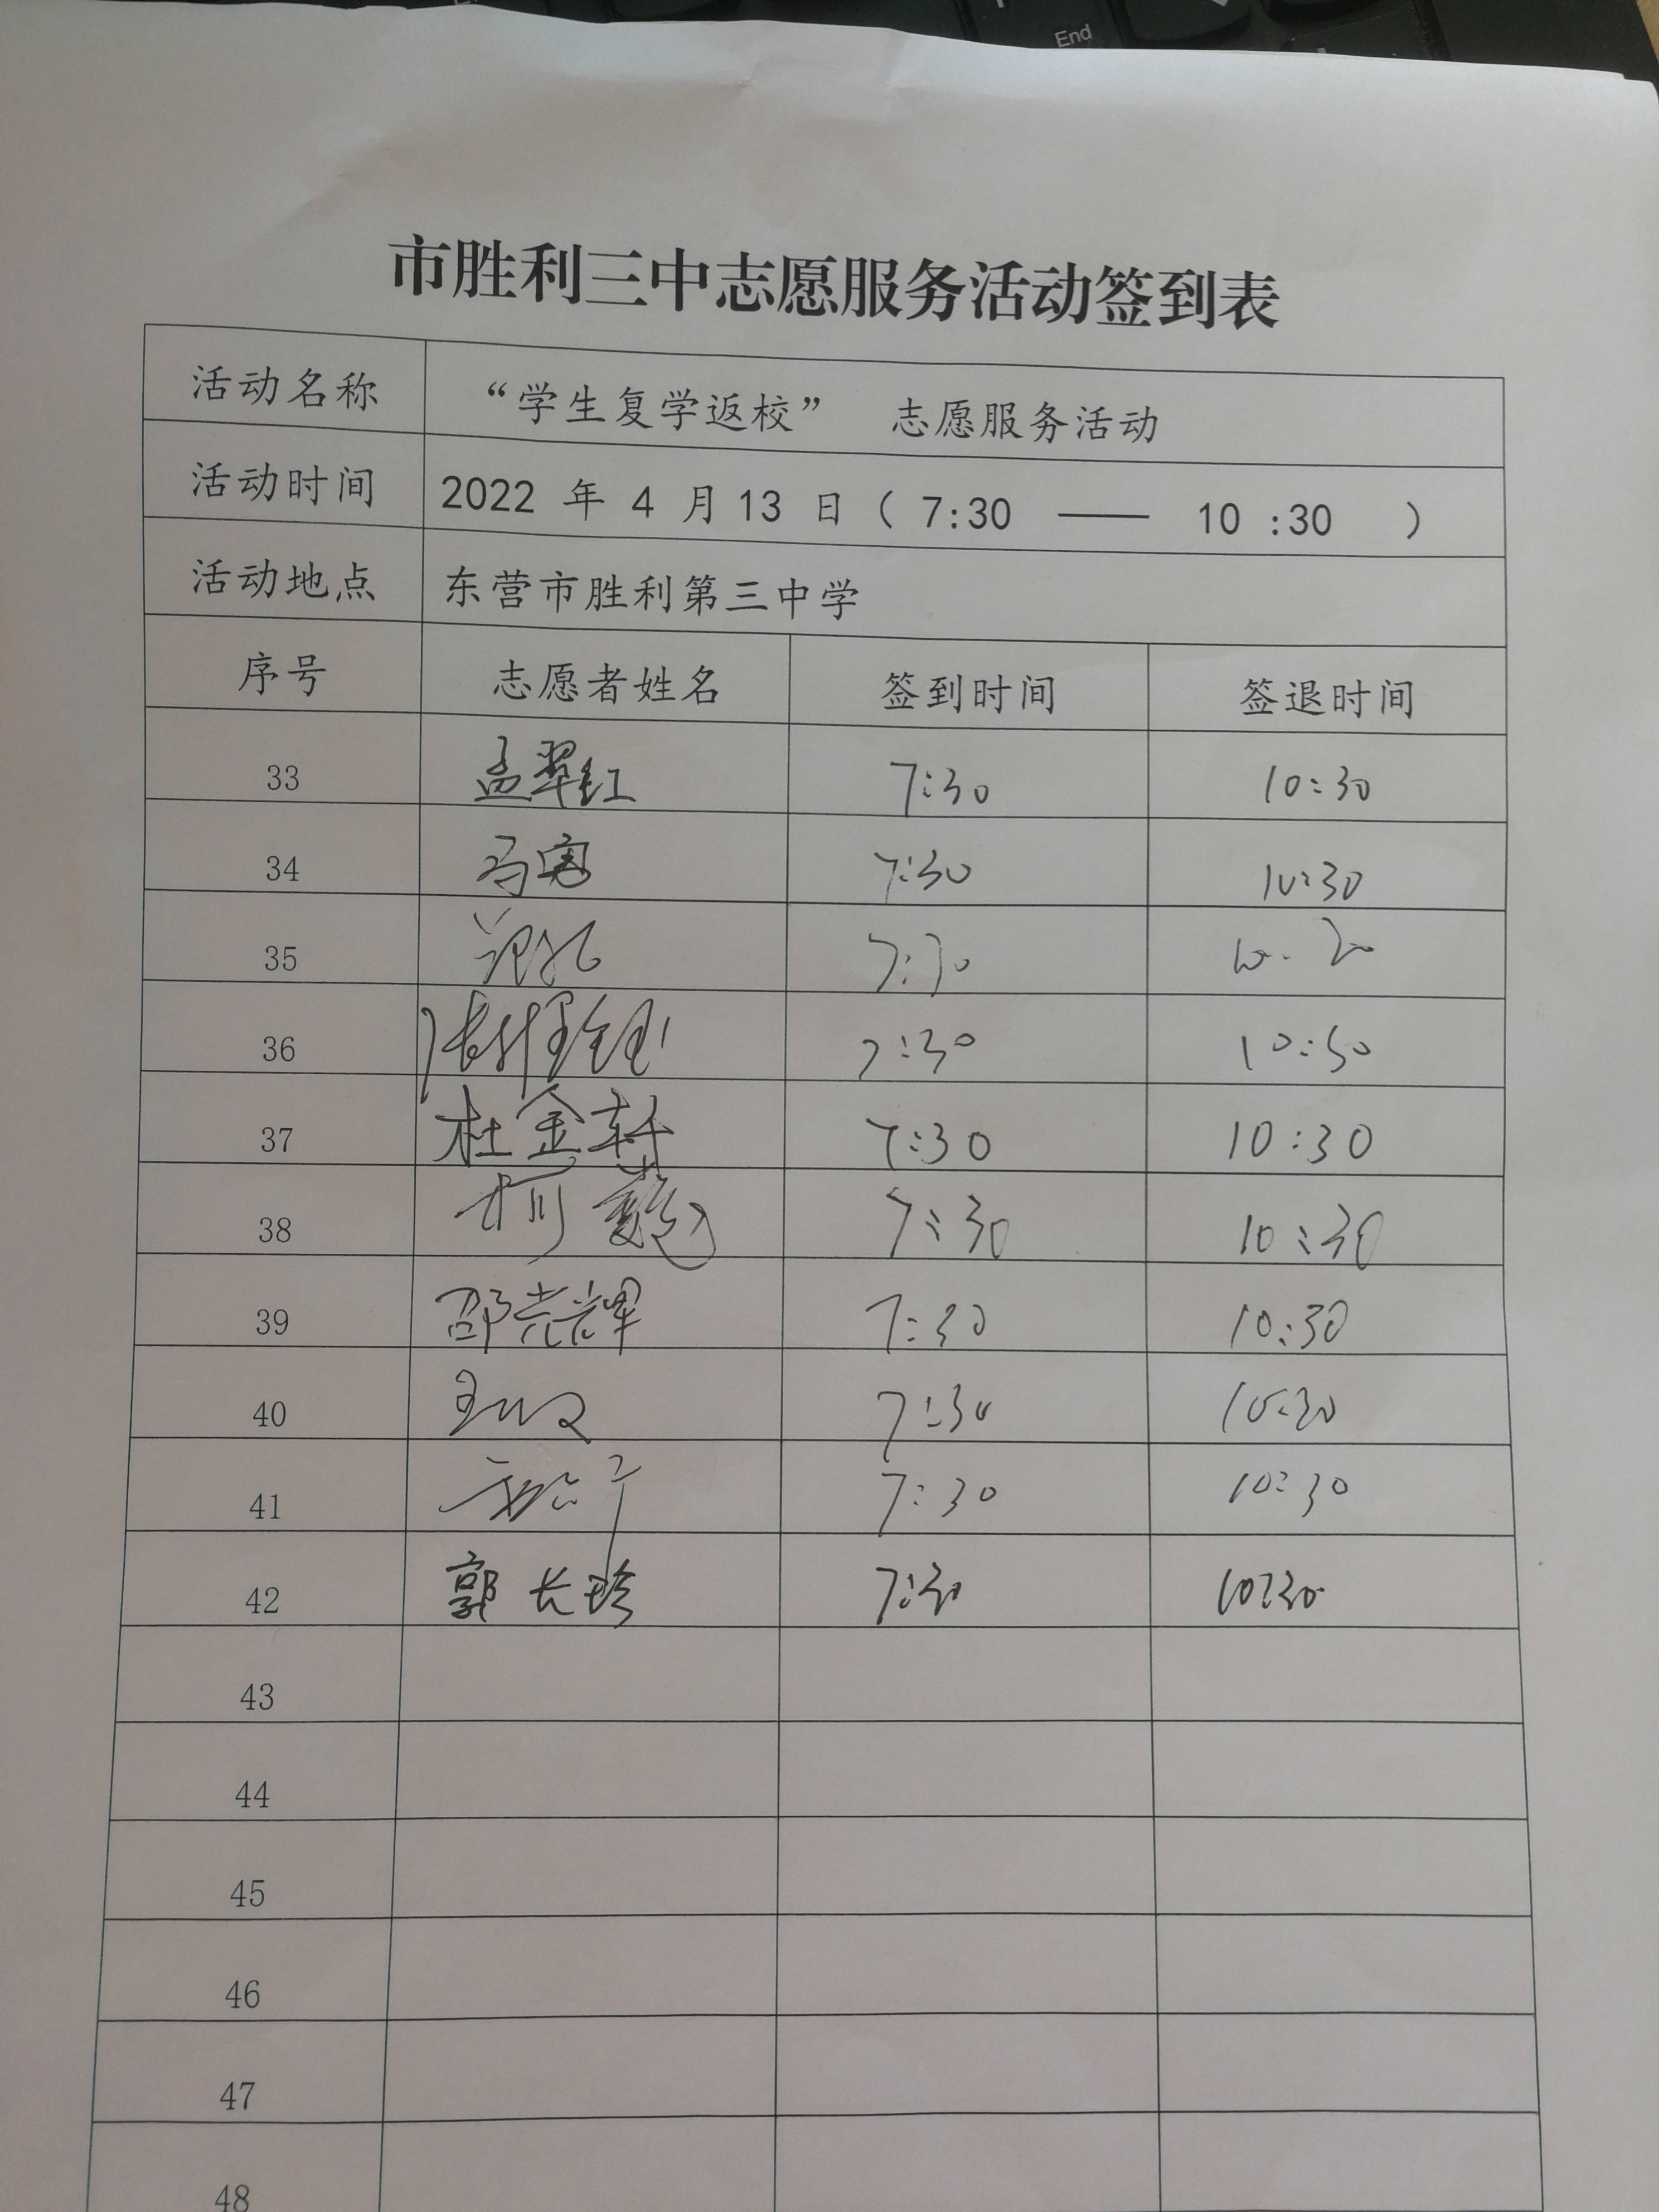 End
市胜利三中志愿服务活动签到表
活动名称 “学生复学返校” 志愿服务活动
活动时间 2022 年 4 月 13 日（ 7:30 —— 10 :30 ）
活动地点 东营市胜利第三中学
序号 志愿者姓名 签到时间 签退时间
33 孟翠红 7:30 10:30
34 7:30 10:30
35 7:30
36 7:30 10:30
37 杜金轩 7:30 10:30
38 7:30 10:30
39 邵光辉 7:30 10:30
40 7:30 10:30
41 7:30 10:30
42 郭长珍 7:30 10:30
43
44
45
46
47
48